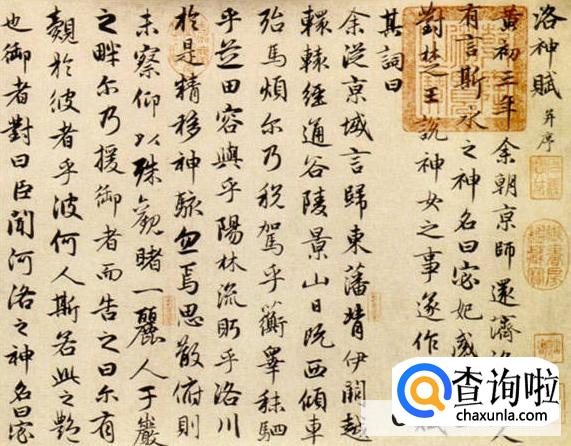 洛神賦 并序
黃初三年余朝京師還濟洛
有言斯水之神名曰宓妃感
對楚王說神女之事遂作
其詞曰
余從京域言歸東藩背伊闕越
轘轅經通谷陵景山日既西傾車
殆馬煩尔乃稅駕乎蘅皋秣駟
乎芝田容與乎陽林流眄乎洛川
於是精移神駭忽焉思散俯則
未察仰以殊觀睹一麗人于巖
之畔尔乃援御者而告之曰尔有
覿於彼者乎彼何人斯若此之艷
也御者對曰臣聞河洛之神名曰宓
查询啦
chaxunla.com